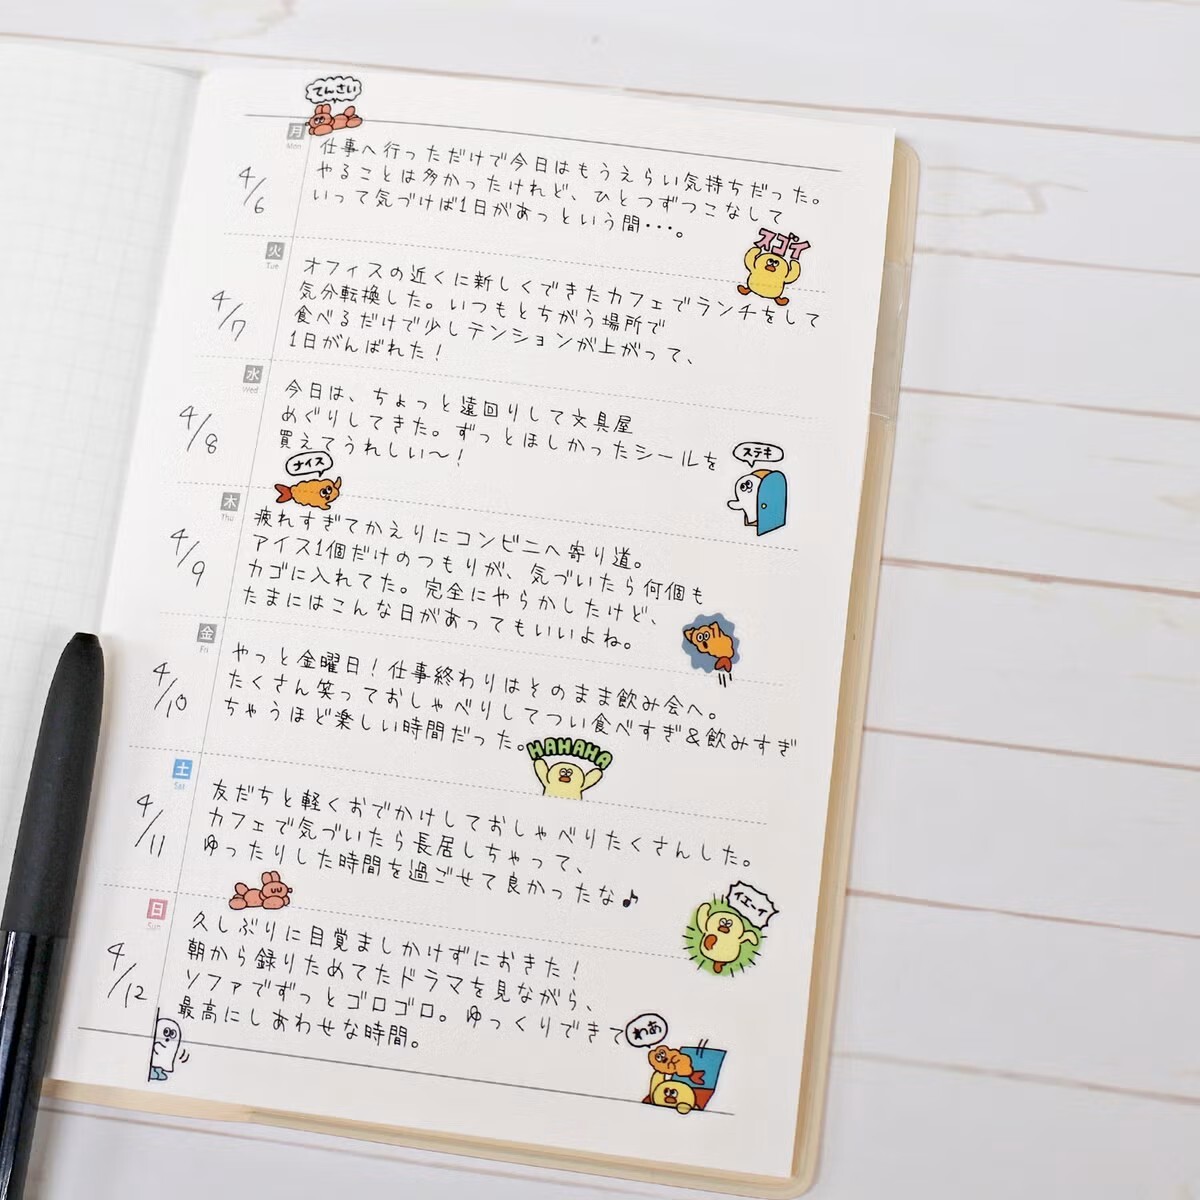 てんさい
月
Mon
4/6
仕事へ行っただけで今日はもうえらい気持ちだった。
やることは多かったけれど、ひとつずつこなして
いって気づけば1日があっという間・・・。
スゴイ
火
Tue
4/7
オフィスの近くに新しくできたカフェでランチをして
気分転換した。いつもとちがう場所で
食べるだけで少しテンションが上がって、
1日がんばれた！
水
Wed
4/8
今日は、ちょっと遠回りして文具屋
めぐりしてきた。ずっとほしかったシールを
買えてうれしい〜！
ステキ
ナイス
木
Thu
4/9
疲れすぎてかえりにコンビニへ寄り道。
アイス1個だけのつもりが、気づいたら何個も
カゴに入れてた。完全にやらかしたけど、
たまにはこんな日があってもいいよね。
金
Fri
4/10
やっと金曜日！仕事終わりはそのまま飲み会へ。
たくさん笑っておしゃべりしてつい食べすぎ&飲みすぎ
ちゃうほど楽しい時間だった。
HAHAHA
土
Sat
4/11
友だちと軽くおでかけしておしゃべりたくさんした。
カフェで気づいたら長居しちゃって、
ゆったりした時間を過ごせて良かったな♪
イエーイ
日
Sun
4/12
久しぶりに目覚ましかけずにおきた！
朝から録りためてたドラマを見ながら、
ソファでずっとゴロゴロ。ゆっくりできて
最高にしあわせな時間。
わあ